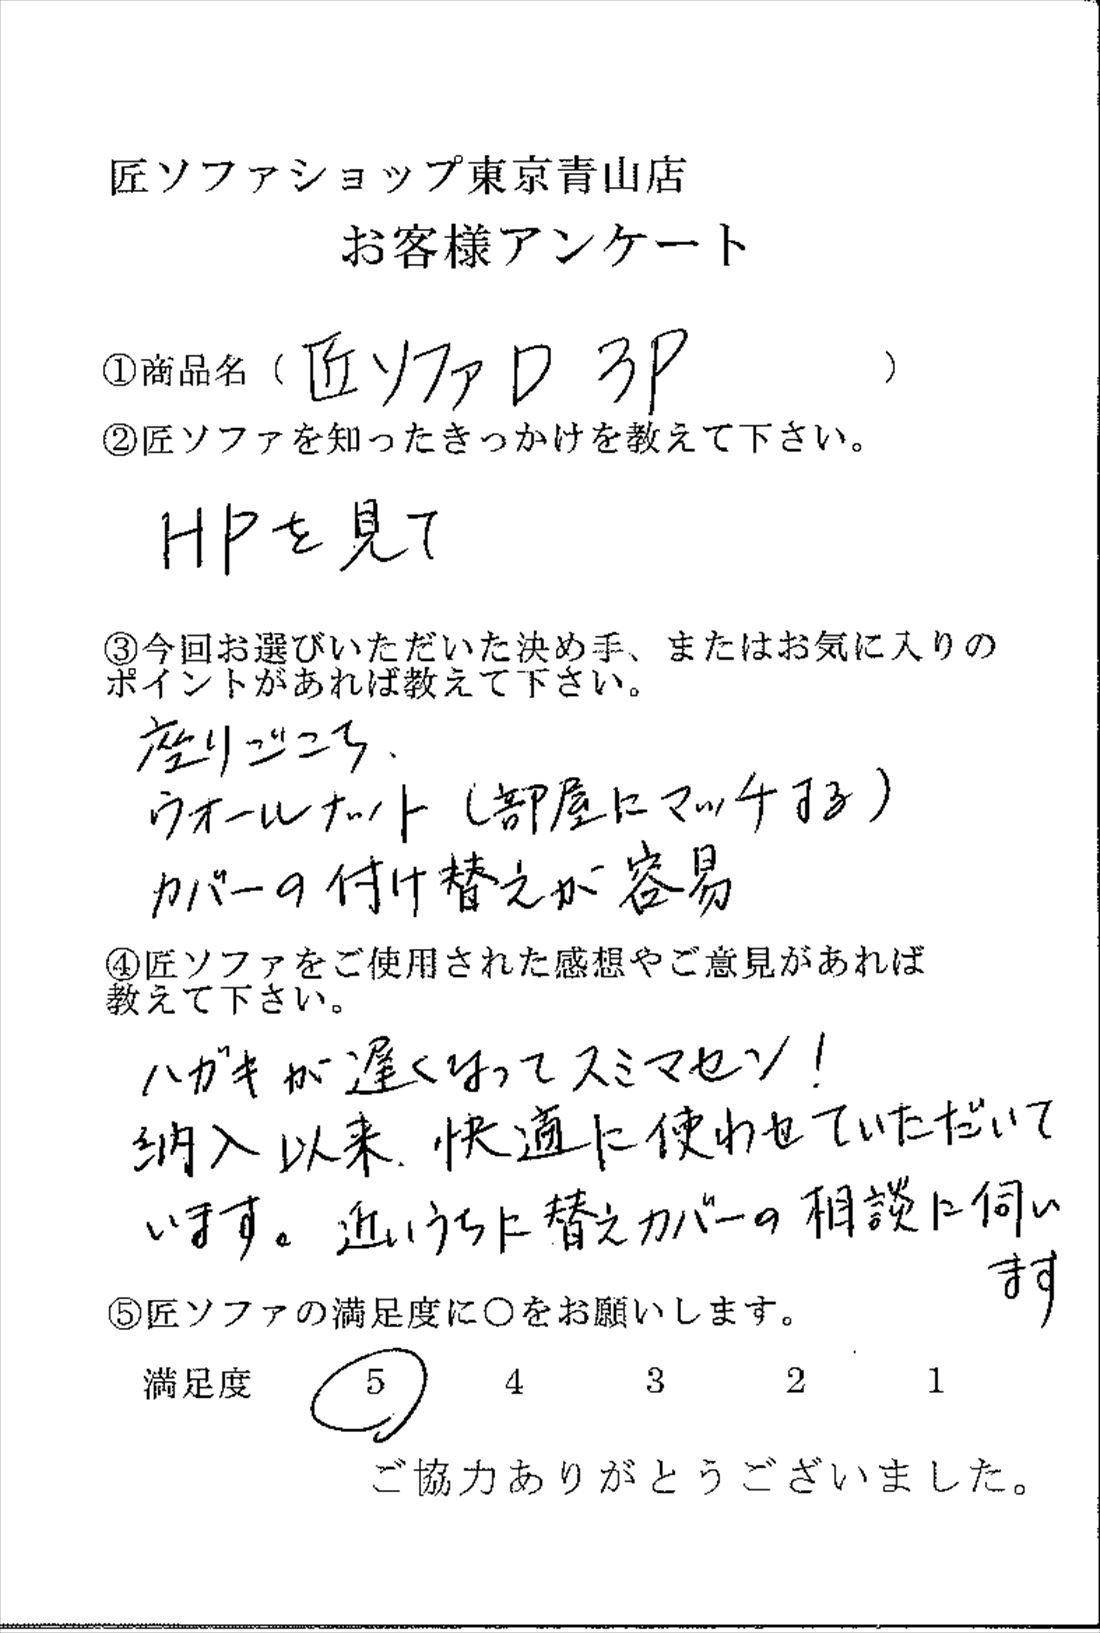 匠ソファショップ東京青山店
お客様アンケート
①商品名（匠ソファD 3P）
②匠ソファを知ったきっかけを教えて下さい。
HPを見て
③今回お選びいただいた決め手、またはお気に入りの
ポイントがあれば教えて下さい。
座りごこち、
ウォールナット（部屋にマッチする）
カバーの付け替えが容易
④匠ソファをご使用された感想やご意見があれば
教えて下さい。
ハガキが遅くなってスミマセン！
納入以来、快適に使わせていただいて
います。近いうちに替えカバーの相談に伺い
ます
⑤匠ソファの満足度に〇をお願いします。
満足度 5 4 3 2 1
ご協力ありがとうございました。